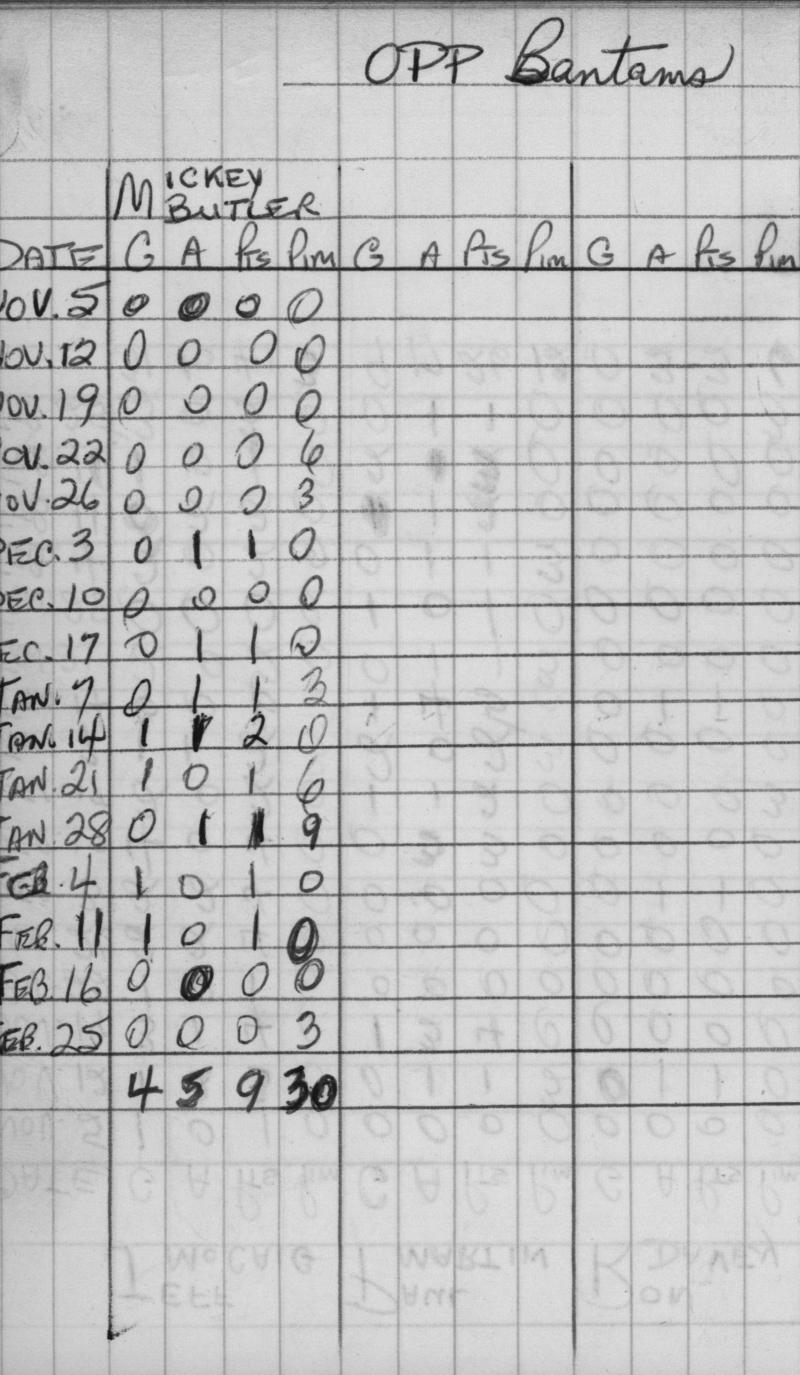 OPP Bantams
MICKEY
BUTLER
DATE G A Pts Pim G A Pts Pim G A Pts Pim
NOV. 5 0 0 0 0
NOV. 12 0 0 0 0
NOV. 19 0 0 0 0
NOV. 22 0 0 0 6
NOV. 26 0 0 0 3
DEC. 3 0 1 1 0
DEC. 10 0 0 0 0
DEC. 17 0 1 1 0
JAN. 7 0 1 1 3
JAN. 14 1 1 2 0
JAN. 21 1 0 1 6
JAN. 28 0 1 1 9
FEB. 4 1 0 1 0
FEB. 11 1 0 1 0
FEB. 16 0 0 0 0
FEB. 25 0 0 0 3
4 5 9 30